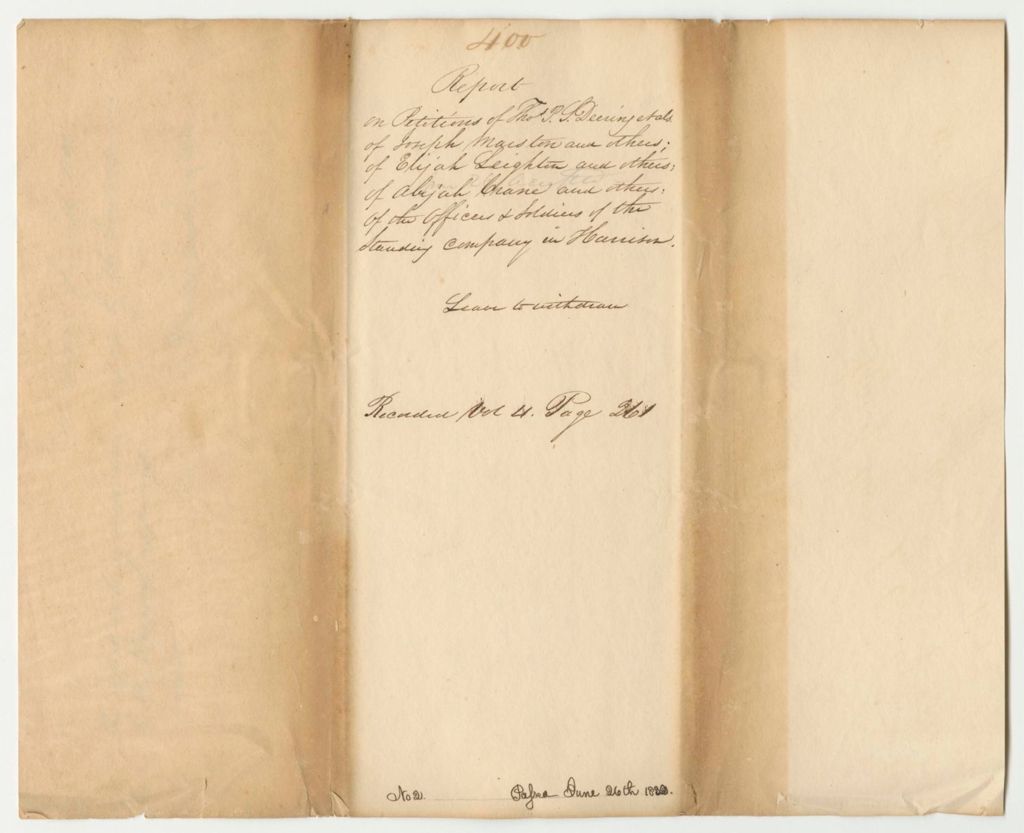 400
Report
on Petitions of Thos P. S. Deering et als
of Joseph Marston and others;
of Elijah Leighton and others;
of Abijah Crane and others;
of the Officers & Soldiers of the
standing company in Harrison.
Leave to withdraw
Recorded Vol 4. Page 261
No 2. Passed June 26th 1832.